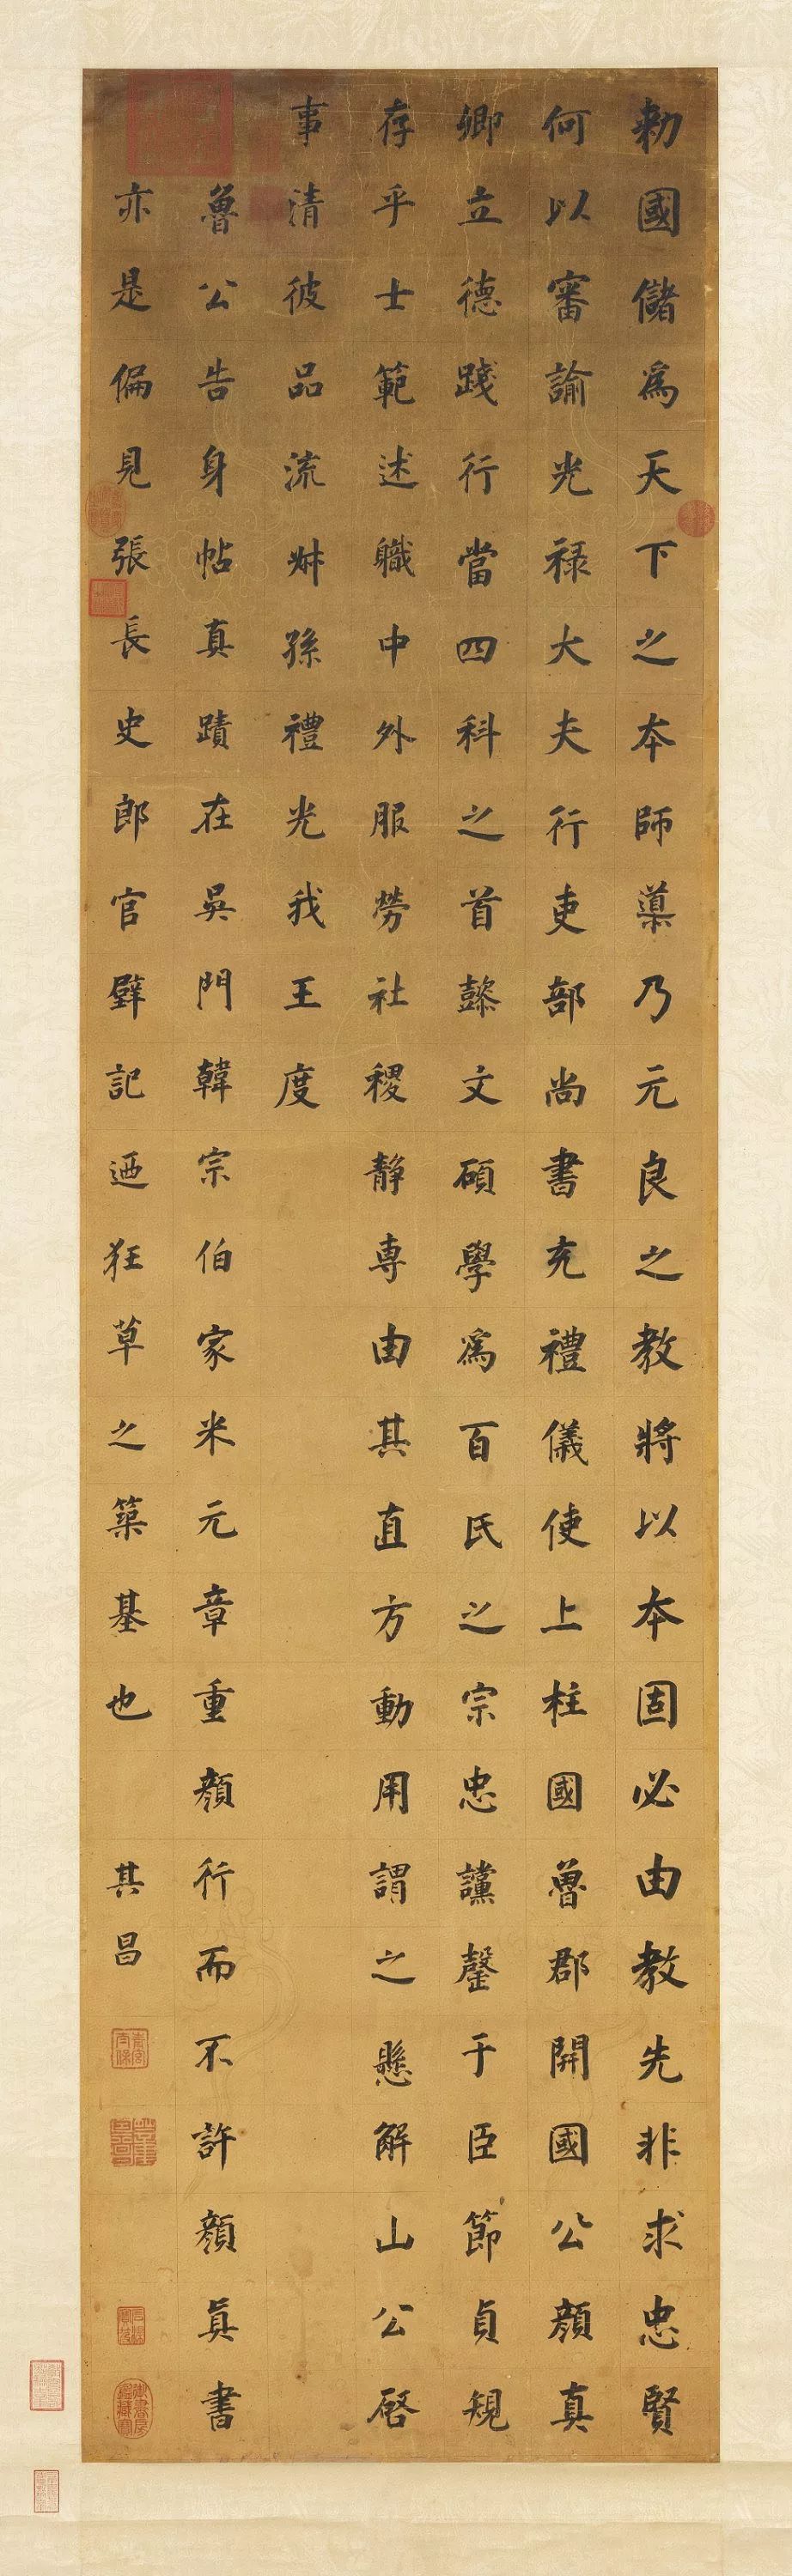 勑國儲為天下之本師導乃元良之教將以本固必由教先非求忠賢
何以審諭光祿大夫行吏部尚書充禮儀使上柱國魯郡開國公顏真
卿立德踐行當四科之首懿文碩學為百氏之宗忠讜罄于臣節貞規
存乎士範述職中外服勞社稷靜專由其直方動用謂之懸解山公啓
事清彼品流叔孫禮光我王度
魯公告身帖真蹟在吳門韓宗伯家米元章重顏行而不許顏真書
亦是偏見張長史郎官壁記迺狂草之築基也
其昌